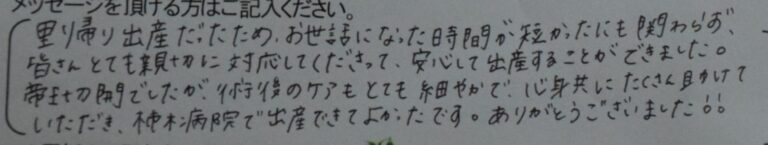 メッセージを頂ける方はご記入ください。
里り帰り出産だったため、お世話になった時間が短かったにも関わらず、
皆さんとても親切に対応してくださって、安心して出産することができました。
帝王切開でしたが、術後のケアもとても細やかで、心身共にたくさん助けて
いただき、柿木病院で出産できてよかったです。ありがとうございました!!